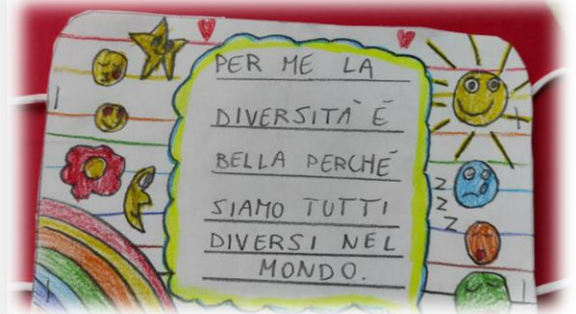 PER ME LA
DIVERSITÀ È
BELLA PERCHÉ
SIAMO TUTTI
DIVERSI NEL
MONDO.
Z
Z
Z